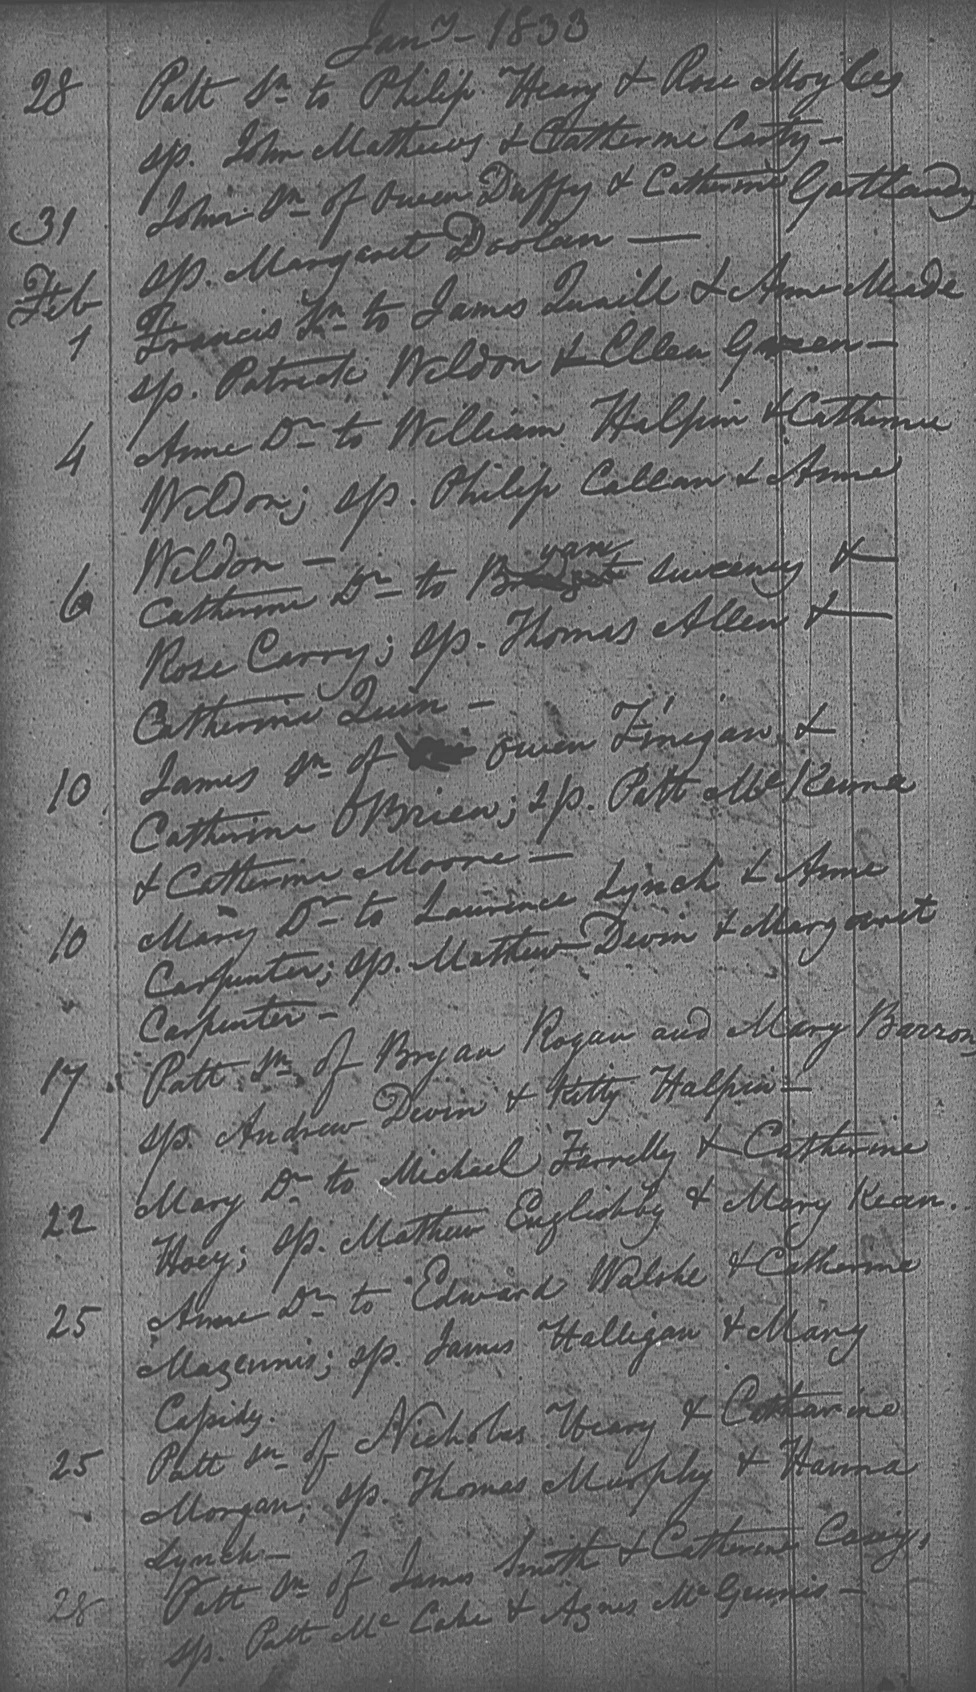 Jany - 1833
28 Patt Sn to Philip Heary & Rose Moyles
sp. John Mathews & Catherine Carty -
31 John Sn of Owen Duffy & Catherine Gartlandy
sp. Margaret Doolan —
Feb
1 Francis Sn to James Quill & Anne Meade
sp. Patrick Weldon & Ellen Green -
4 Anne Dr to William Halpin & Catherine
Wildon; sp. Philip Callan & Anne
Wildon -
6 Catherine Dr to Bryan Sweeney &
Rose Carry; sp. Thomas Allen &
Catherine Quin -
10 James Sn of Owen Finigan &
Catherine OBrien; sp. Patt McKenna
& Catherine Moore -
10 Mary Dr to Laurence Lynch & Anne
Carpenter; sp. Mathew Devin & Margaret
Carpenter -
17 Patt Sn of Bryan Rogan and Mary Barron
sp. Andrew Devin & Kitty Halpin -
22 Mary Dr to Michael Farrelly & Catherine
Hoey; sp. Mathew Englishby & Mary Kean.
25 Anne Dr to Edward Walshe & Catherine
Magennis; sp. James Halligan & Mary
Casidy.
25 Patt Sn of Nicholas Heary & Catharine
Morgan; sp. Thomas Murphy & Hanna
Lynch -
28 Patt Sn of James Smith & Catherine Casey;
sp. Patt Mc Cabe & Agnes McGennis -